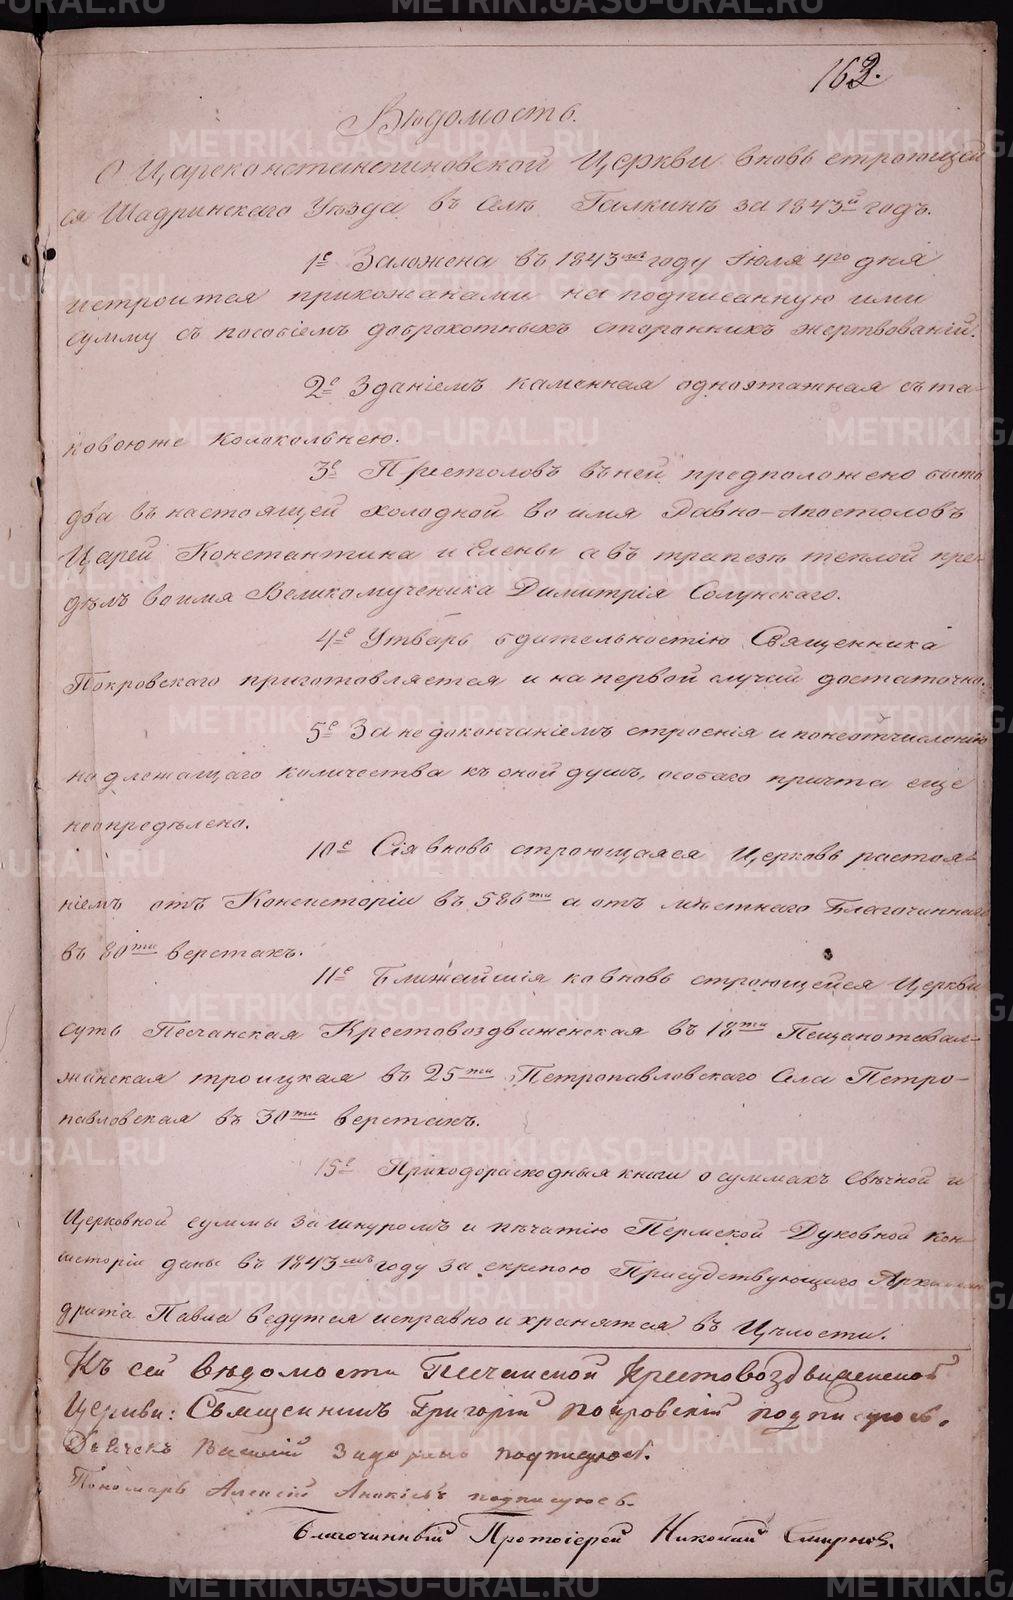 163.
Вѣдомость.
О Цареконстантиновской Церкви вновь строющей
ся Шадринскаго Уѣзда въ Селѣ Галкинѣ за 1843й годъ.
1е Заложена въ 1843мъ году Іюля 4го дня
истроится прихожанами на подписанную ими
сумму съ пособіемъ доброхотныхъ стороннихъ жертвованій.
2е Зданіемъ каменная одноэтажная съ та-
ковоюже колокольнею.
3е Престоловъ въ ней предположено быть
два въ настоящей холодной во имя Равно-Апостоловъ
Царей Константина и Елены а въ трапезѣ теплой пре-
дѣлъ во имя Великомученика Димитрія Солунскаго.
4е Утварь бдительностію Священника
Покровскаго приготовляется и на первой случай достаточна.
5е За недокончаніемъ строенія и понеотчисленію
надлежащаго количества къ оной душъ, особаго причта еще
неопредѣлено.
10е Сія вновь строющаяся Церковь растоя-
ніемъ отъ Консисторіи въ 586ти а отъ мѣстнаго Благочиннаго
въ 80ти верстахъ.
11е Ближайшія ко вновь строющейся Церкви
суть Песчанская Крестовоздвиженская въ 18ти Пещанотавол-
жанская троицкая въ 25ти Петропавловскаго Села Петро-
павловская въ 30ти верстахъ.
15е Приходорасходныя книги о суммахъ Свѣчной и
Церковной суммы за шнуромъ и печатію Пермской Духовной Кон-
систоріи даны въ 1843мъ году за скрепою Присудствующаго Архиман
дрита Павла ведутся исправно и хранятся въ Цѣлости.
Къ сей вѣдомости Песчанской Крестовоздвиженской
Церкви: Священникъ Григорій Покровскій подписуюсь.
Дьячекъ Василій подписуюсь.
Пономарь Алексій подписуюсь.
Благочинный Протоіерей Николай Смирнов.
METRIKI.GASO-URAL.RU